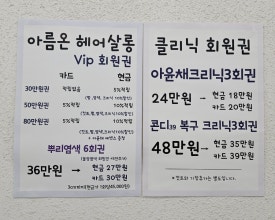 아름온 헤어살롱
Vip 회원권
카드 현금
30만원권 적립없음 5%적립
50만원권 5%적립 10%적립
80만원권 5%적립 10%적립
뿌리염색 6회권
36만원 → 현금 27만원
카드 30만원
클리닉 회원권
아윤채크리닉3회권
24만원 → 현금 18만원
카드 20만원
콘디 복구 크리닉3회권
48만원 → 현금 35만원
카드 39만원